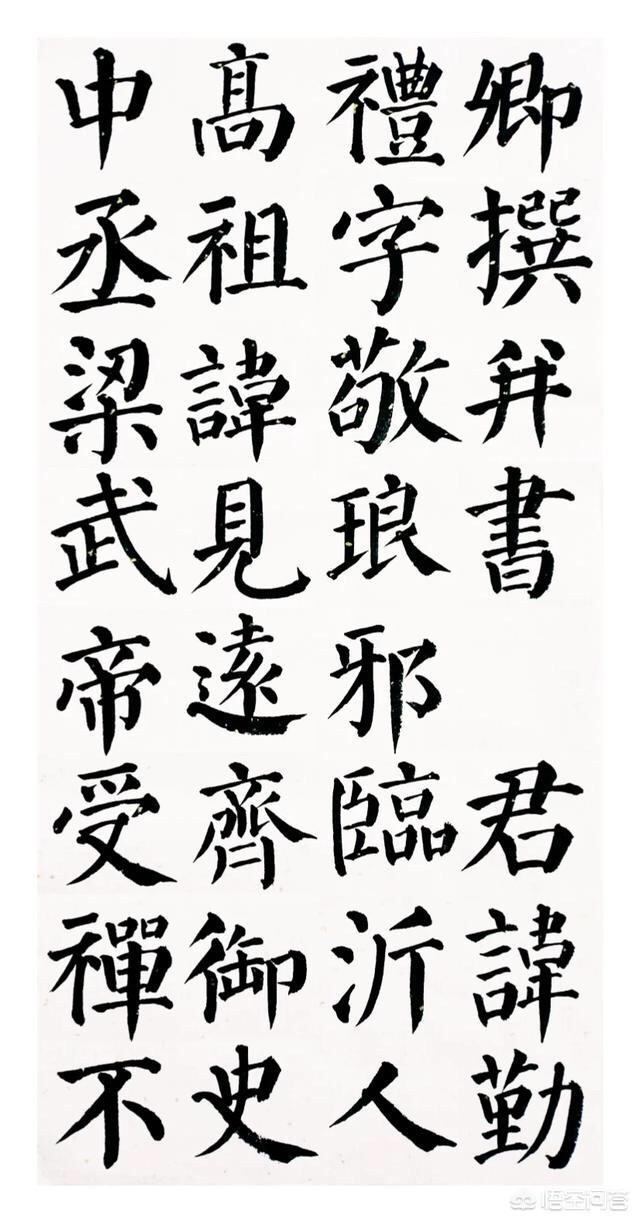 卿撰并書 君諱勤
禮字敬琅邪臨沂人
高祖諱見遠齊御史
中丞梁武帝受禪不
悟空问答